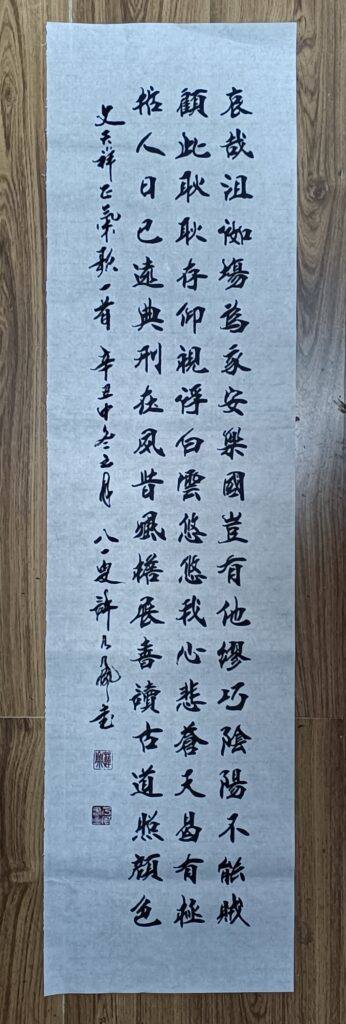 哀哉沮洳場為家安樂國豈有他繆巧陰陽不能賊
顧此耿耿存仰視浮白雲悠悠我心悲蒼天曷有極
哲人日已遠典刑在夙昔風檐展書讀古道照顏色
文天祥正氣歌一首 辛丑中冬之月 八一叟 許